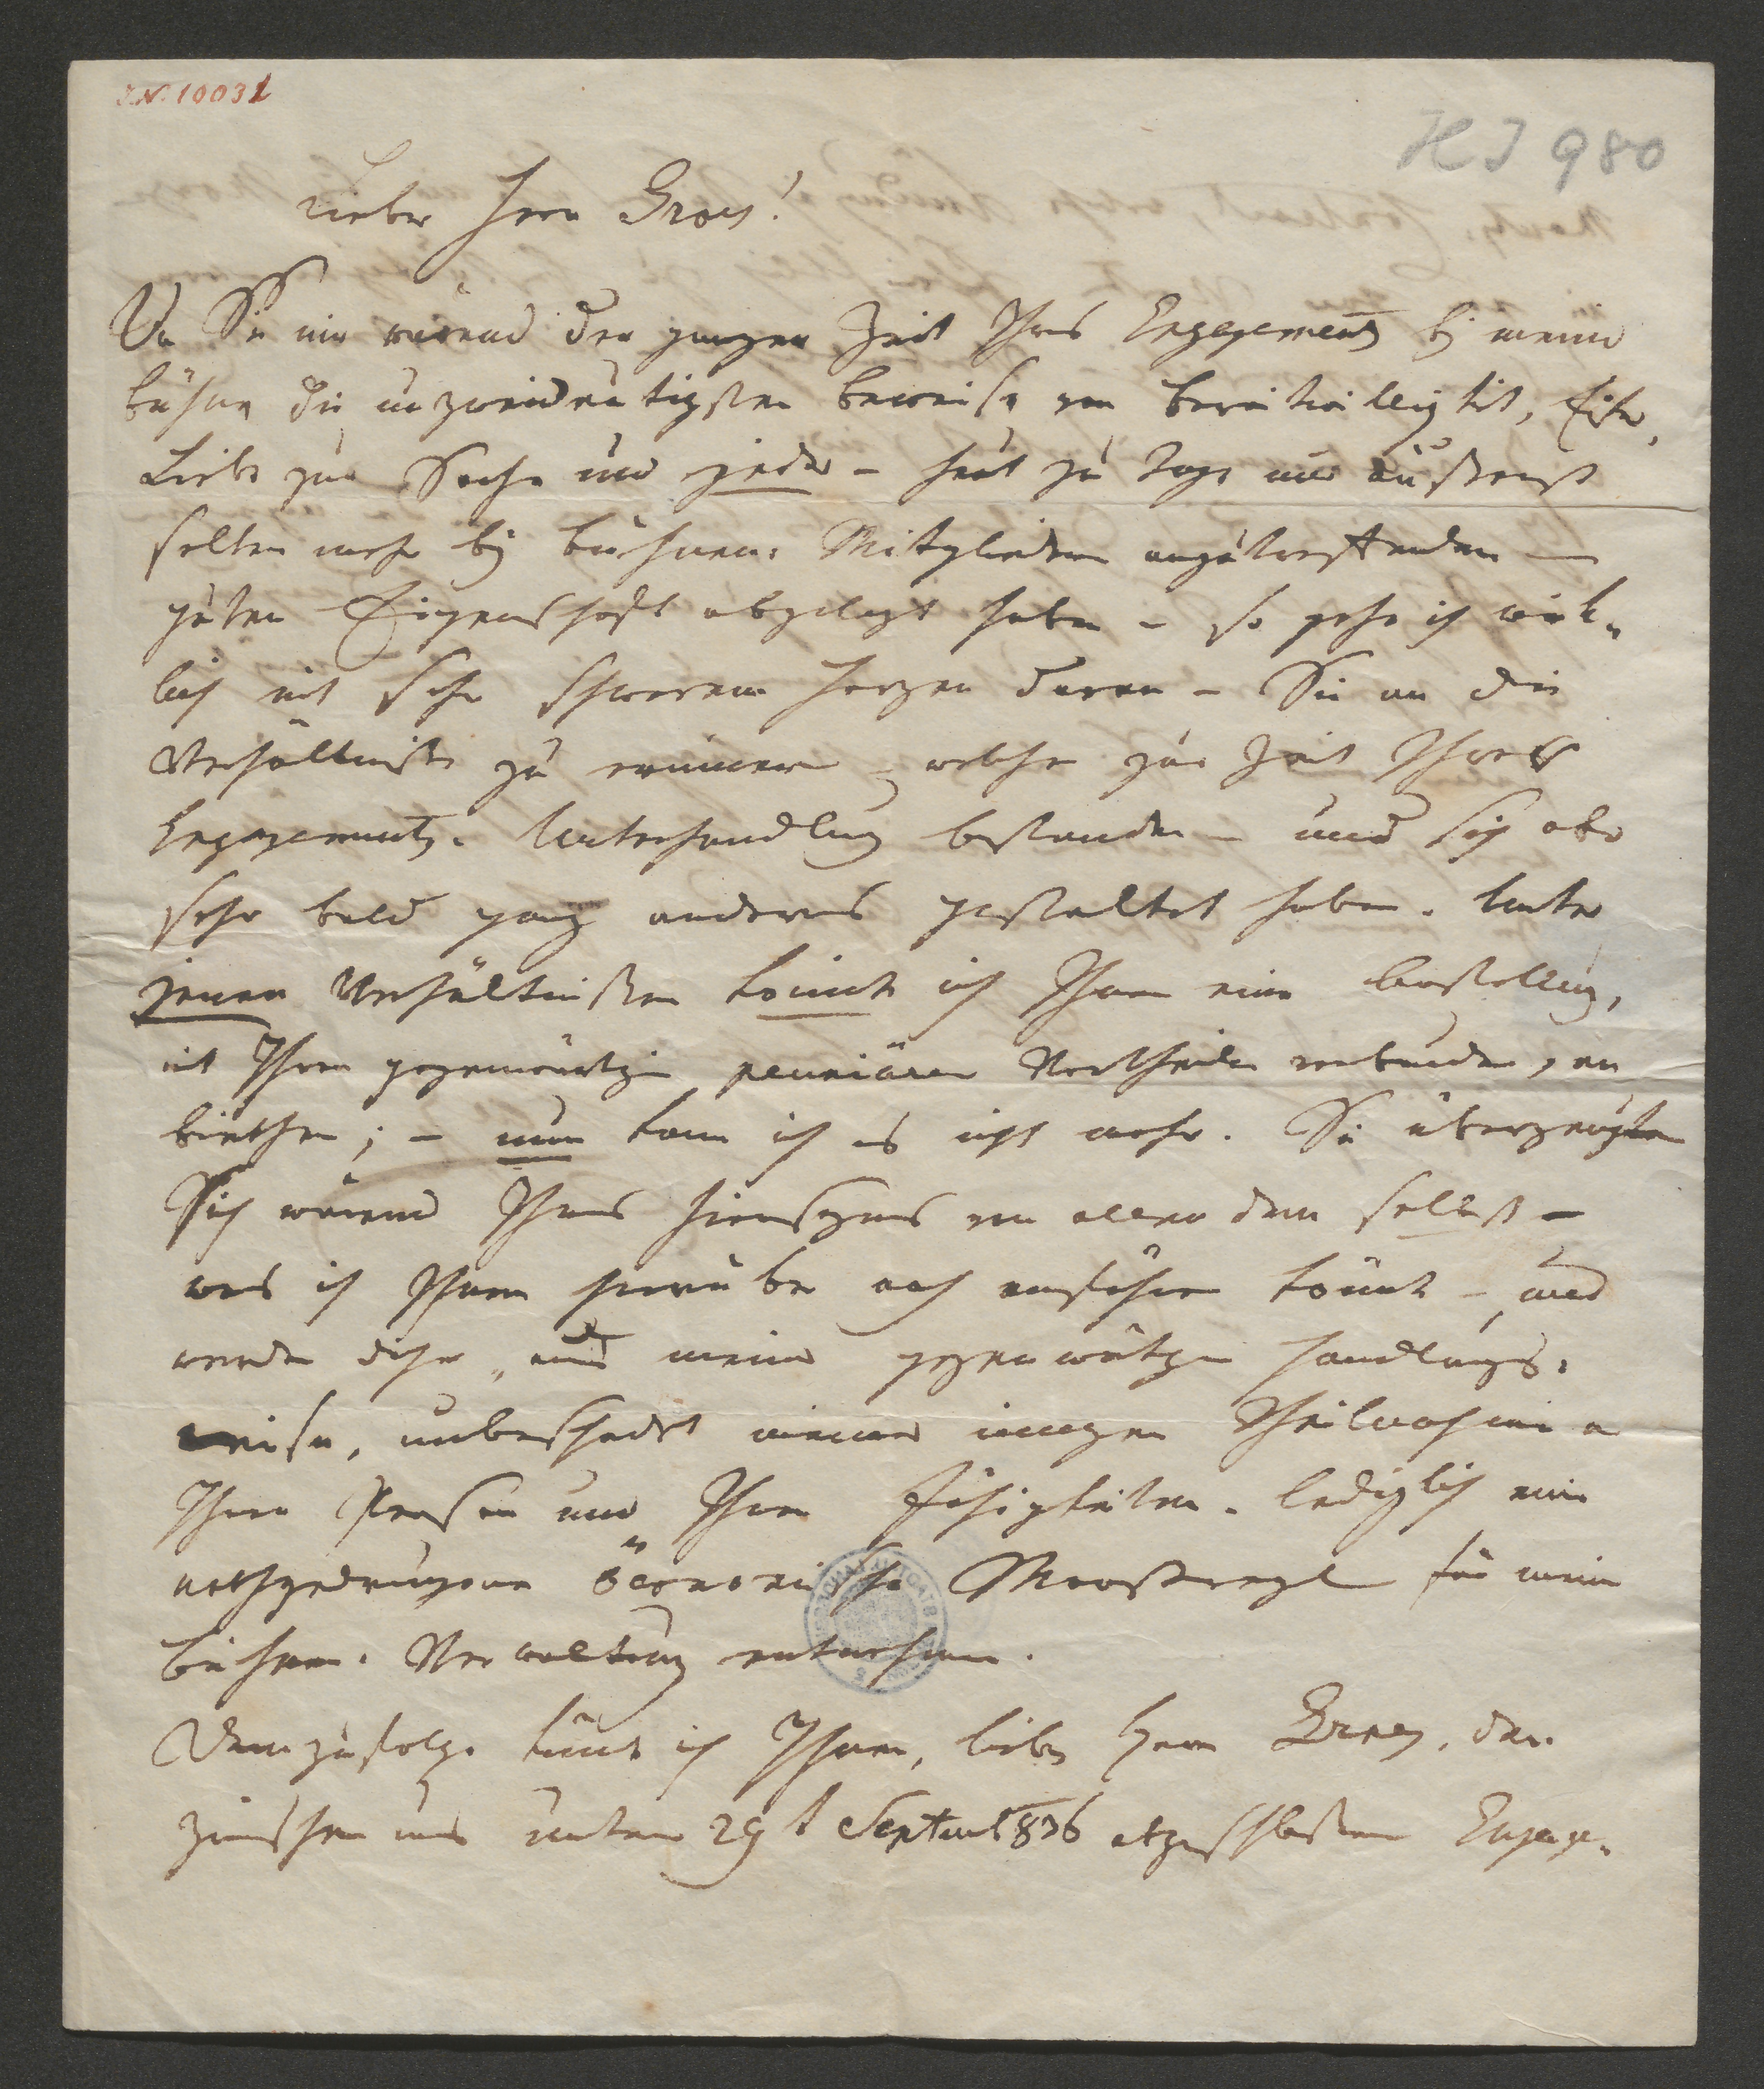 I.N. 10031
HJ 980
Lieber Herr Grois!
Da Sie mir wärend der ganzen Zeit Ihres Engagements bey meiner
Bühne die unzweideutigsten Beweise von Bereitwilligkeit, Eifer,
Liebe zur Sache und jeder – heut zu Tage nur äußerst
selten mehr bey Bühnen-Mitgliedern anzutreffenden –
guten Eigenschaft abgelegt haben – so gehe ich wirk-
lich mit sehr schwerem Herzen daran – Sie an die
Verhältniße zu erinnern – welche zur Zeit Ihrer
Engagements-Unterhandlung bestanden – und sich aber
sehr bald ganz anders gestaltet haben. Unter
jenen Verhältnißen konnte ich Ihnen eine Anstellung,
mit Ihren gegenwärtigen pecuniären Vortheilen verbunden, an
biethen; – nun kann ich es nicht mehr. Sie überzeugten
Sich wärend Ihres Hierseyns von allen dem selbst –
was ich Ihnen hierüber noch anführen könnte – und
werden daher, aus meiner gegenwärtigen Handlungs-
weise, unbeschadet meiner innigen Theilnahme an
Ihrer Person und Ihren Fähigkeiten – lediglich eine
nothgedrungene öconomische Maaßregel für meine
Bühnen-Verwaltung entnehmen.
Demzufolge künde ich Ihnen, lieber Herr Grois, den
zwischen uns unterm 29t Septemb 836 abgeschloßenen Engage-